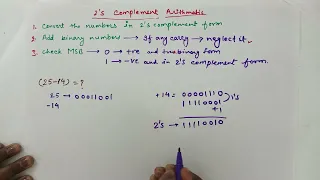 2's Complement Arithmetic
1. Convert the numbers in 2's complement form
2. Add binary numbers → If any carry → neglect it.
3. Check MSB → 0 → +ve and true binary form
1 → -ve and in 2's complement form.
(25-14) = ?
25 → 00011001
-14
+14 = 00001110
11110001 ) 1's
+1
2's → 11110010